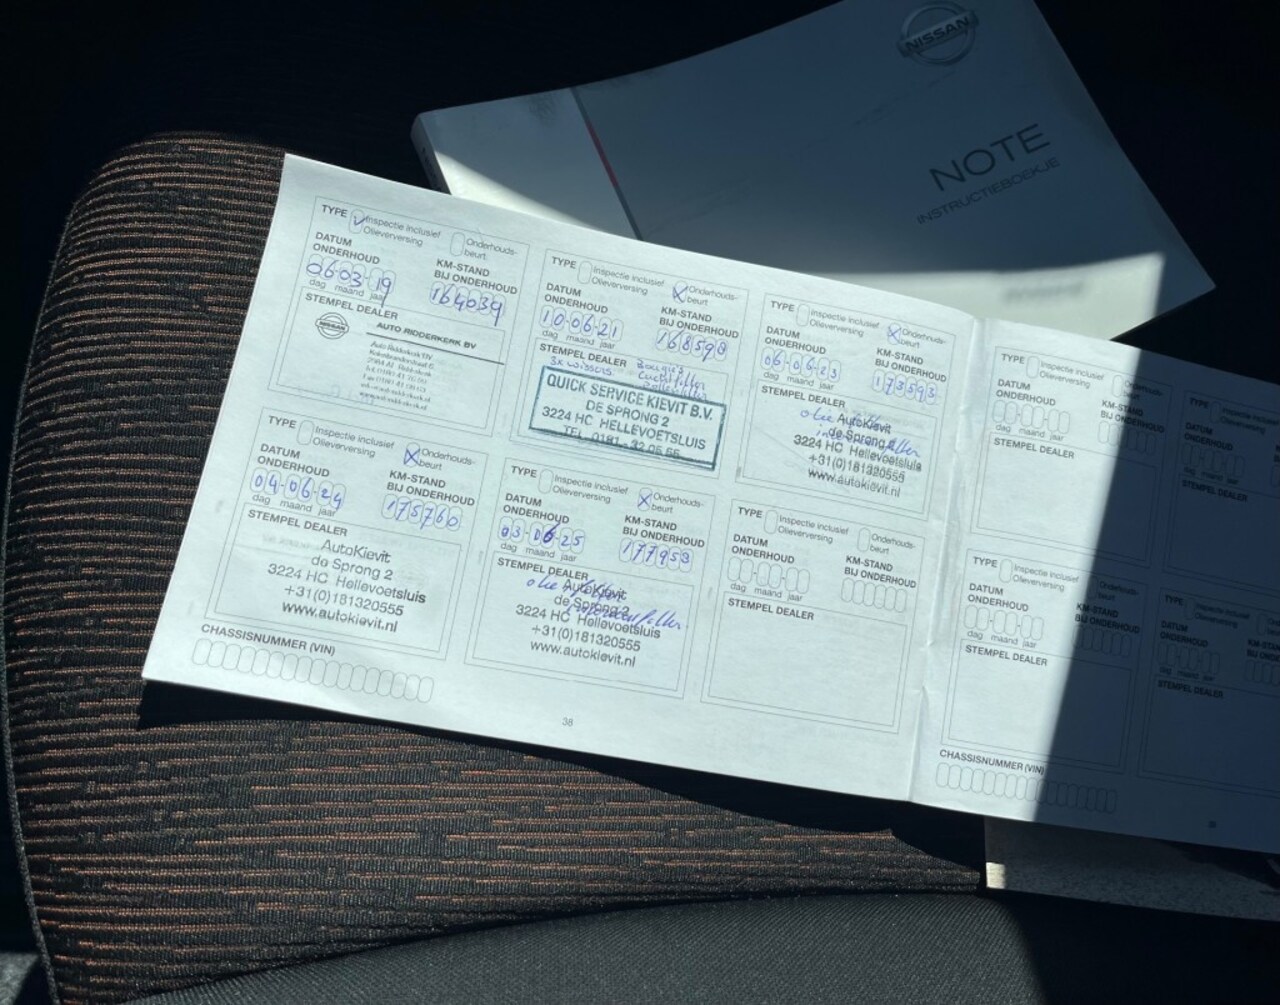 NISSAN
NOTE
INSTRUCTIEBOEKJE
TYPE Inspectie inclusief Olieverversing Onderhouds-beurt
DATUM ONDERHOUD
06-03-19
dag maand jaar
KM-STAND BIJ ONDERHOUD
164039
STEMPEL DEALER
NISSAN
AUTO RIDDERKERK BV
Auto Ridderkerk BV
TYPE Inspectie inclusief Olieverversing Onderhouds-beurt
DATUM ONDERHOUD
10-06-21
dag maand jaar
KM-STAND BIJ ONDERHOUD
168590
STEMPEL DEALER
3x wissers
QUICK SERVICE KIEVIT B.V.
DE SPRONG 2
3224 HC HELLEVOETSLUIS
TEL. 0181 - 32 05 55
TYPE Inspectie inclusief Olieverversing Onderhouds-beurt
DATUM ONDERHOUD
06-06-23
dag maand jaar
KM-STAND BIJ ONDERHOUD
173593
STEMPEL DEALER
AutoKievit
de Sprong 2
3224 HC Hellevoetsluis
+31(0)181320555
www.autokievit.nl
TYPE Inspectie inclusief Olieverversing Onderhouds-beurt
DATUM ONDERHOUD
04-06-24
dag maand jaar
KM-STAND BIJ ONDERHOUD
175760
STEMPEL DEALER
AutoKievit
de Sprong 2
3224 HC Hellevoetsluis
+31(0)181320555
www.autokievit.nl
TYPE Inspectie inclusief Olieverversing Onderhouds-beurt
DATUM ONDERHOUD
03-06-25
dag maand jaar
KM-STAND BIJ ONDERHOUD
177953
STEMPEL DEALER
AutoKievit
de Sprong 2
3224 HC Hellevoetsluis
+31(0)181320555
www.autokievit.nl
TYPE Inspectie inclusief Olieverversing Onderhouds-beurt
DATUM ONDERHOUD
dag maand jaar
KM-STAND BIJ ONDERHOUD
STEMPEL DEALER
CHASSISNUMMER (VIN)
38
TYPE Inspectie inclusief Olieverversing
DATUM ONDERHOUD
dag maand jaar
KM-STAND BIJ ONDERHOUD
STEMPEL DEALER
TYPE Inspectie inclusief Olieverversing
DATUM ONDERHOUD
dag maand jaar
STEMPEL DEALER
TYPE Inspectie inclusief Olieverversing Onderhouds-beurt
DATUM ONDERHOUD
dag maand jaar
KM-STAND BIJ ONDERHOUD
STEMPEL DEALER
TYPE Inspectie inclusief Olieverversing
DATUM ONDERHOUD
dag maand jaar
STEMPEL DEALER
CHASSISNUMMER (VIN)